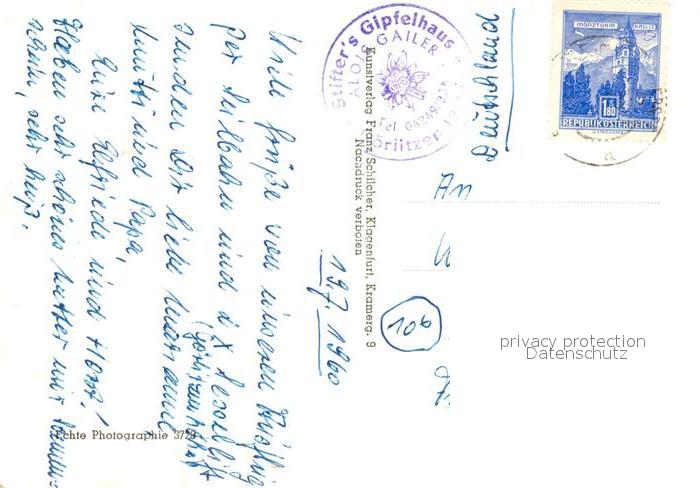 Viele Grüße von unserem Ausflug
per Seilbahn und 2x Sessellift
(Görlitzen
senden Dir liebe Marianne
Mutti und Papa,
Eure Elfriede und Horst!
Haben sehr schönes Wetter mit
sehr heiß.
19.7.1960
Stifter's Gipfelhaus
ALOIS GAILER
Tel. 04248
Görlitzen
Kunstverlag Franz Schilcher, Klagenfurt, Kramerg. 9
Nachdruck verboten
Echte Photographie
Deutschland
MÜNZTURM
1.80
REPUBLIK ÖSTERREICH
An
106
privacy protection
Datenschutz